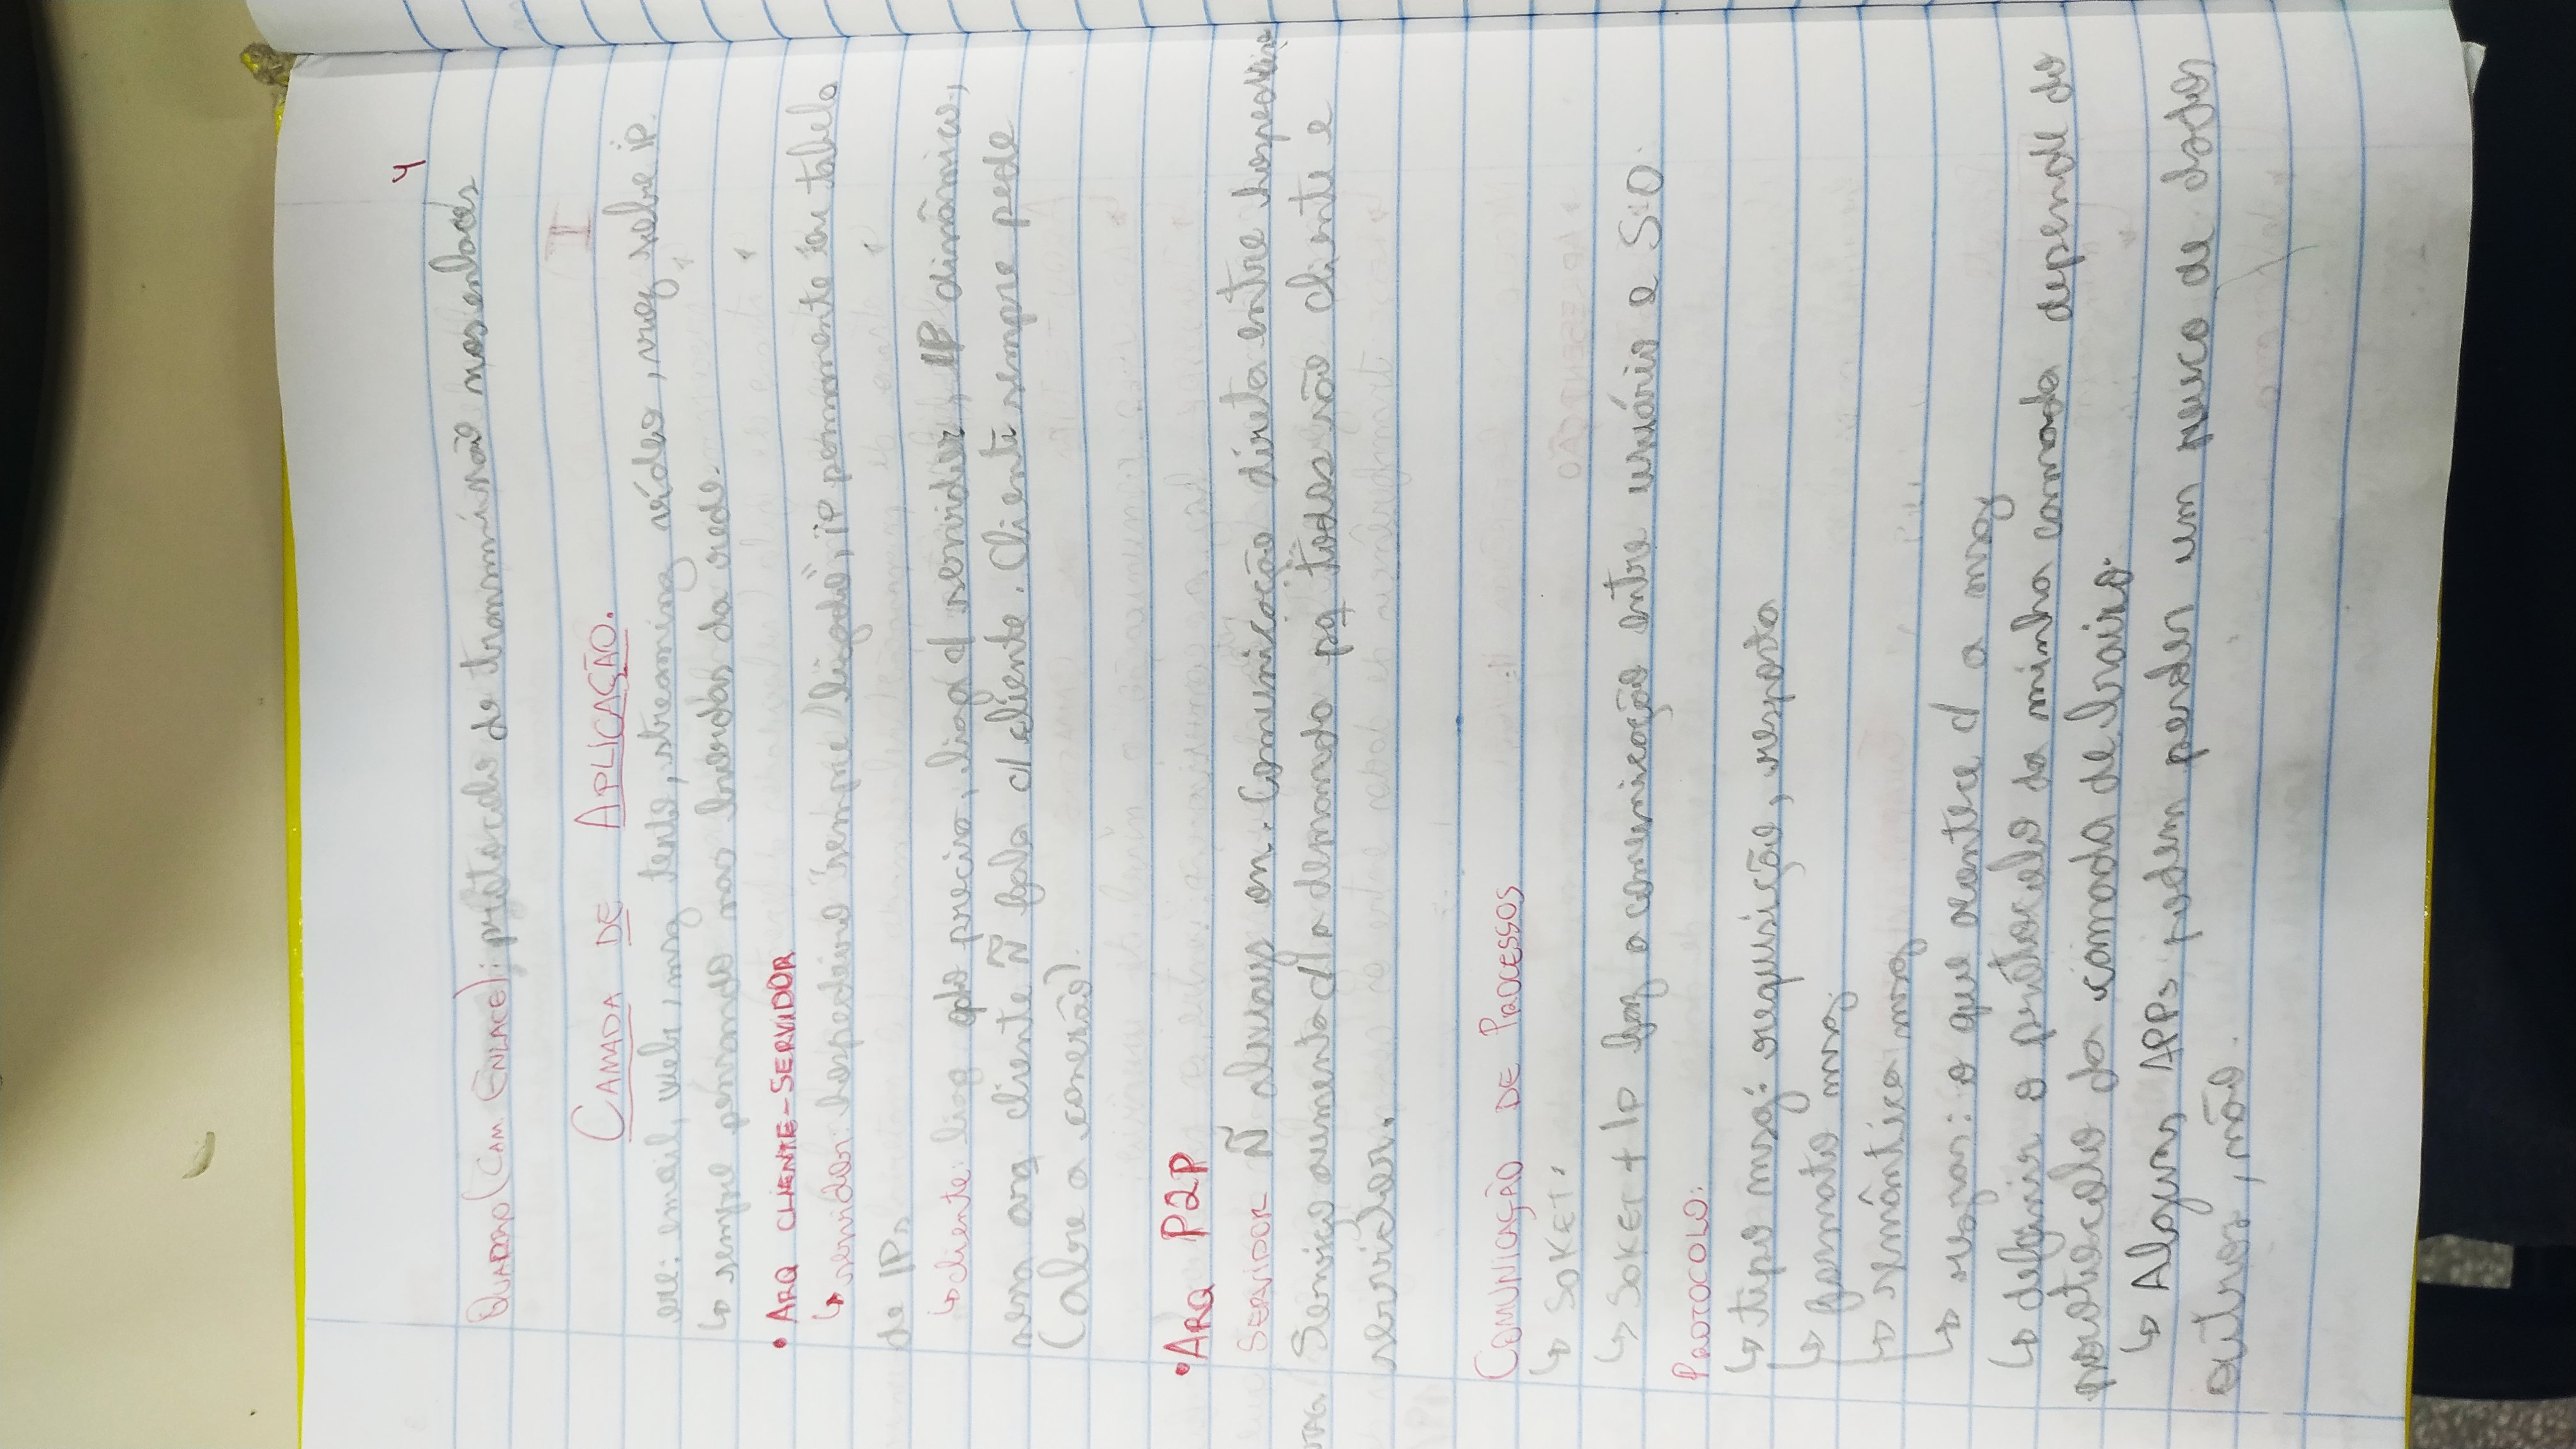 4
QUADRO (CAM. ENLACE): protocolo de transmissão nos enlaces
I
CAMADA DE APLICAÇÃO.
ex: email, web, msg texto, streaming vídeo, voz sobre iP
↳ sempre pensando nas bordas da rede.
• ARQ CLIENTE-SERVIDOR
↳ servidor: hospedeiro "sempre ligado", iP permanente ou tabela
de IPs
↳ cliente: liga qdo precisa, liga c/ servidor, IP dinâmico,
nessa arq cliente Ñ fala c/ cliente. Cliente sempre pede
(abre a conexão).
• ARQ P2P
SERVIDOR Ñ always on. Comunicação direta entre hospedeiros
Serviço aumenta c/ a demanda pq todos são cliente e
servidor.
COMUNICAÇÃO DE PROCESSOS
↳ SOKET:
↳ SOKET + Ip faz a comunicação entre usuário e S.O.
PROTOCOLO:
↳ tipo msg: requisição, resposta
↳ formato msg
↳ semântica msg
↳ regras: o que acontece c/ a msg
↳ definir o protocolo da minha camada depende do
protocolo da camada de baixo.
↳ Algumas APPs podem perder um pouco de dados
outros, não.